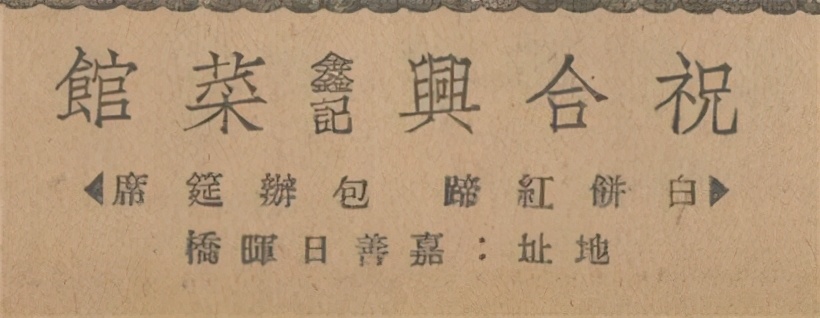 祝合興鑫記菜館
白餅紅蹄 包辦筵席
地址：嘉善日暉橋